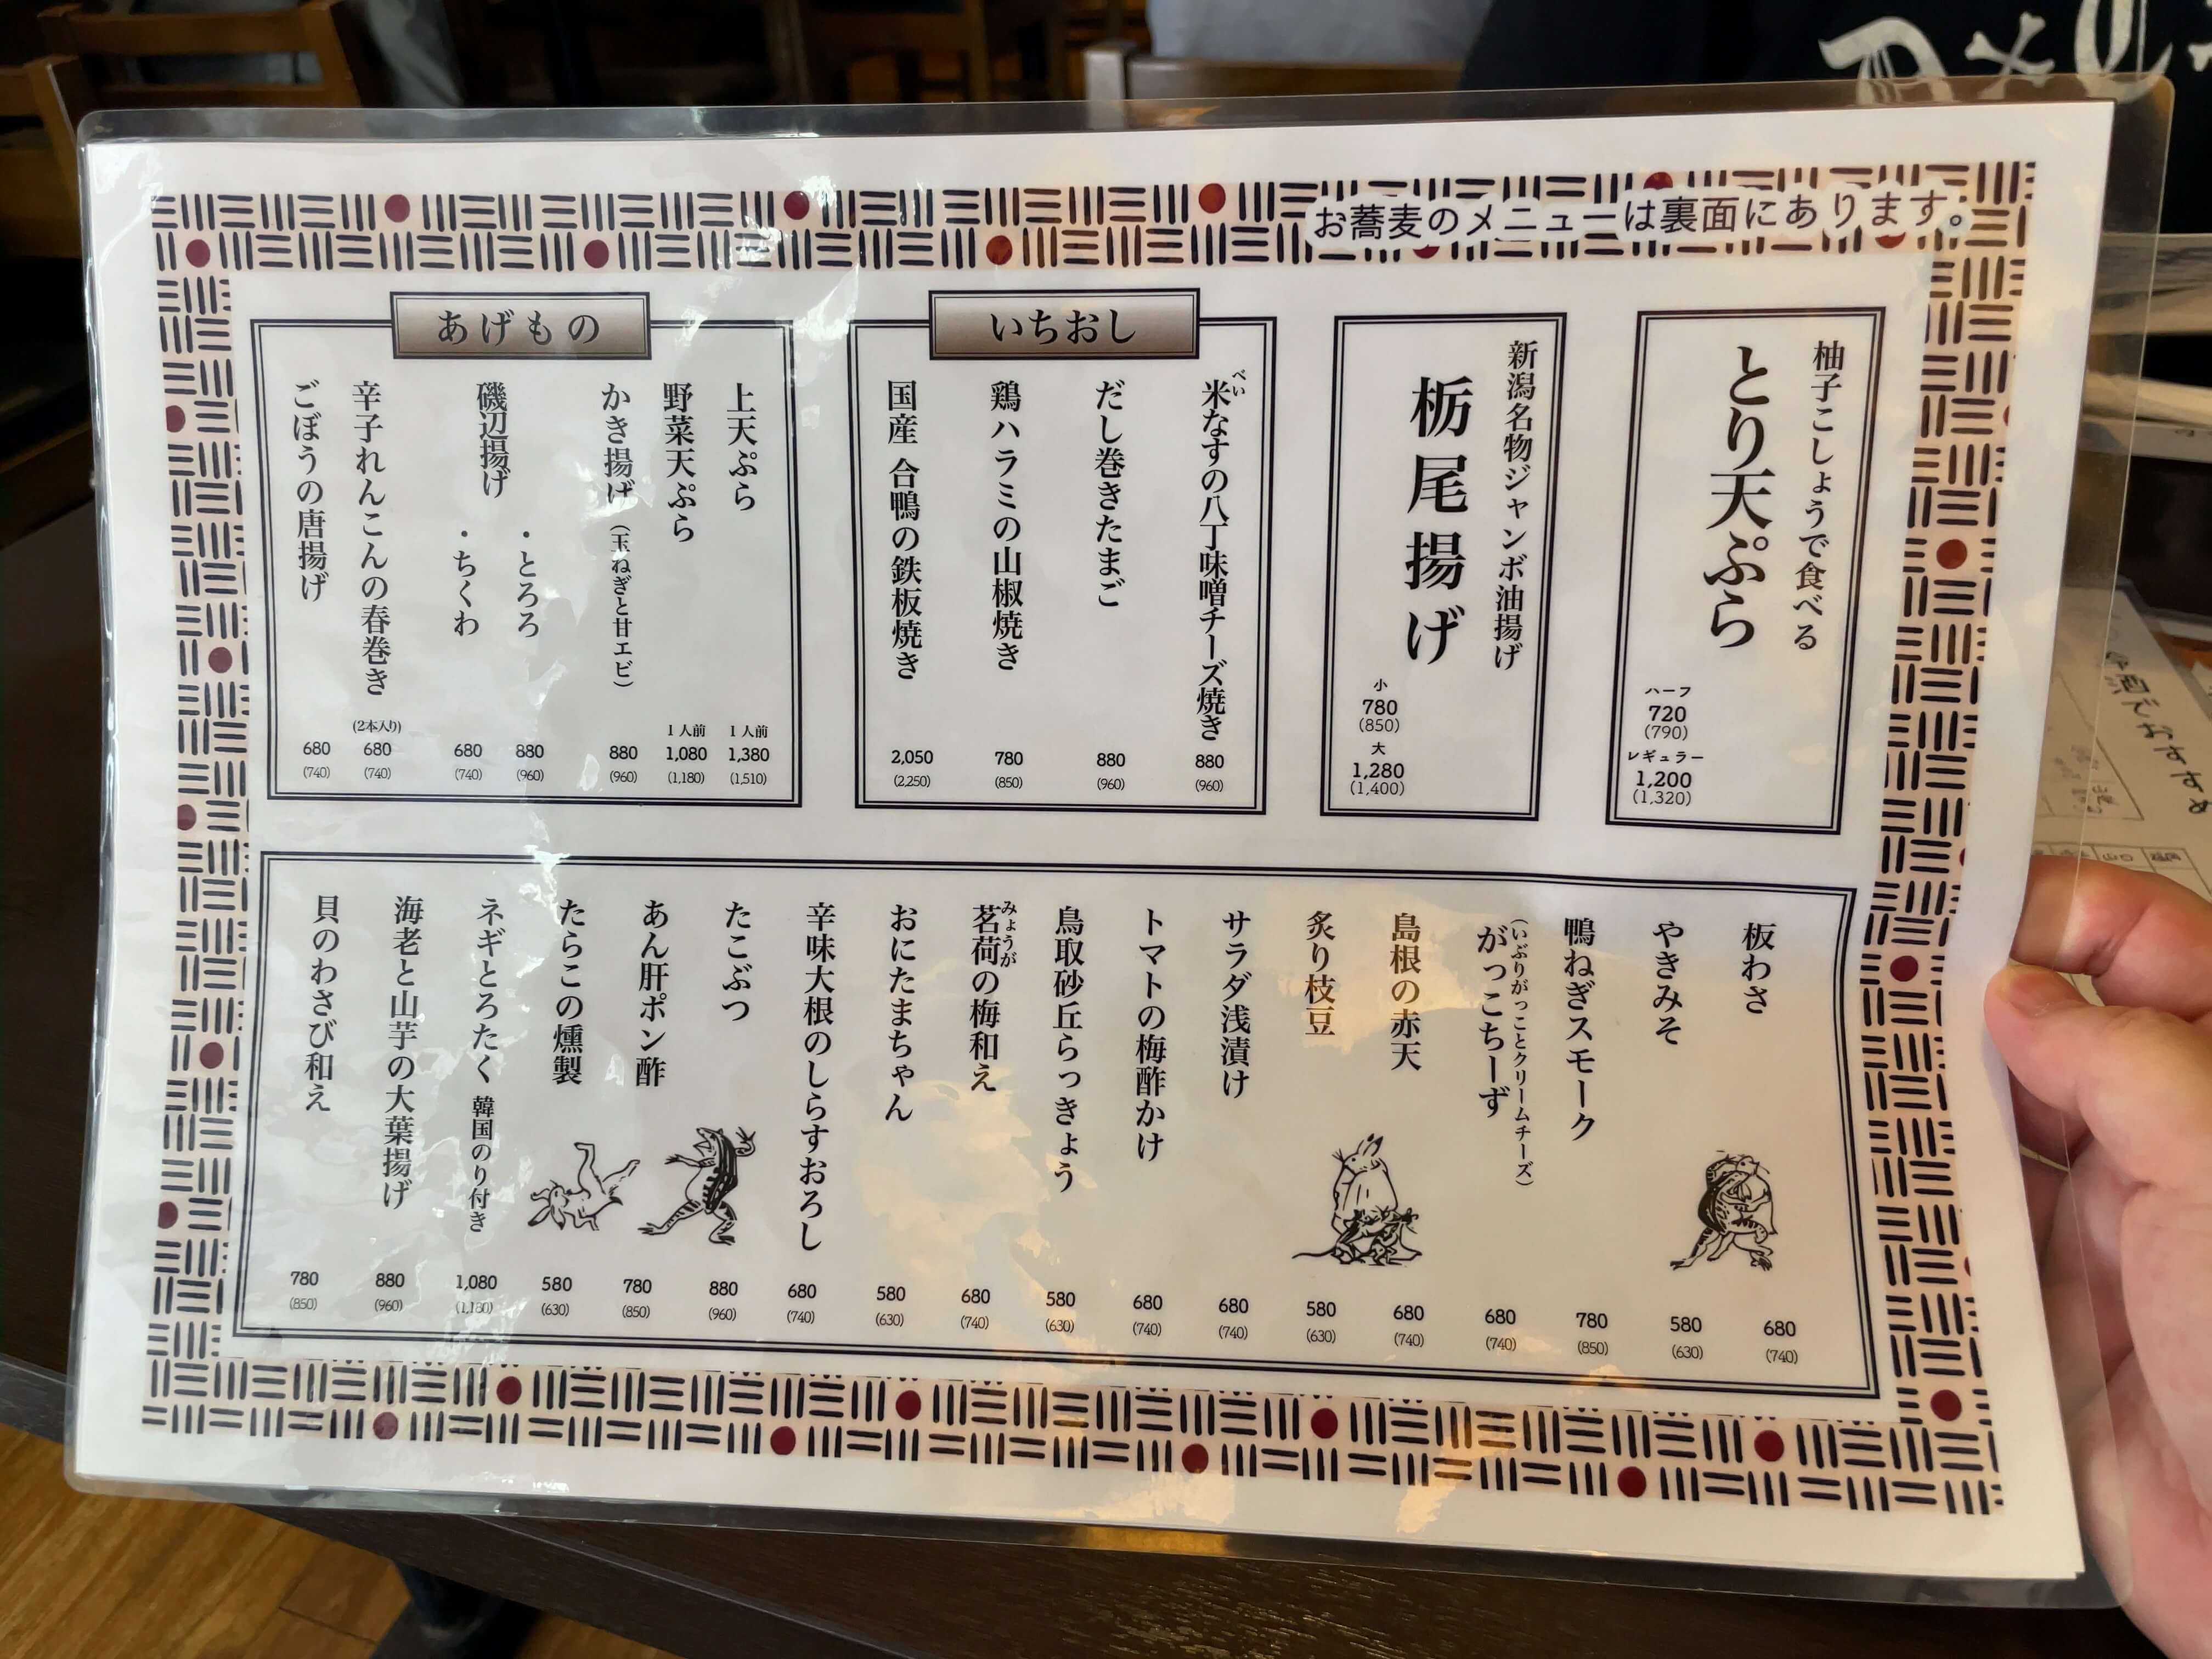 お蕎麦のメニューは裏面にあります。
柚子こしょうで食べる
とり天ぷら
ハーフ
720
(790)
レギュラー
1,200
(1,320)
新潟名物ジャンボ油揚げ
栃尾揚げ
小
780
(850)
大
1,280
(1,400)
いちおし
べい
米なすの八丁味噌チーズ焼き
880
(960)
だし巻きたまご
880
(960)
鶏ハラミの山椒焼き
780
(850)
国産 合鴨の鉄板焼き
2,050
(2,250)
あげもの
上天ぷら
1人前
1,380
(1,510)
野菜天ぷら
1人前
1,080
(1,180)
かき揚げ(玉ねぎと甘エビ)
880
(960)
磯辺揚げ
・とろろ
880
(960)
・ちくわ
680
(740)
辛子れんこんの春巻き
(2本入り)
680
(740)
ごぼうの唐揚げ
680
(740)
板わさ
680
(740)
やきみそ
580
(630)
鴨ねぎスモーク
780
(850)
(いぶりがっことクリームチーズ)
がっこちーず
680
(740)
島根の赤天
680
(740)
炙り枝豆
580
(630)
サラダ浅漬け
680
(740)
トマトの梅酢かけ
680
(740)
鳥取砂丘らっきょう
580
(630)
みょうが
茗荷の梅和え
680
(740)
おにたまちゃん
580
(630)
辛味大根のしらすおろし
680
(740)
たこぶつ
880
(960)
あん肝ポン酢
780
(850)
たらこの燻製
580
(630)
ネギとろたく 韓国のり付き
1,080
(1,180)
海老と山芋の大葉揚げ
880
(960)
貝のわさび和え
780
(850)